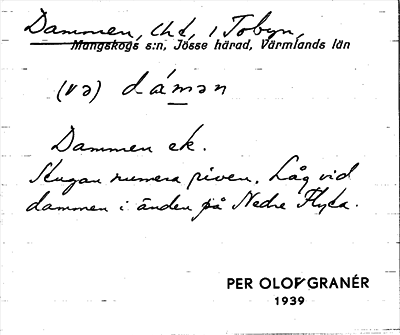 Dammen, lht, i Tobyn,
Mangskogs s:n, Jösse härad, Värmlands län
(va) dámən
Dammen ek.
Stugan numera riven. Låg vid
dammen i änden på Nedre Flyta.
PER OLOF GRANÉR
1939